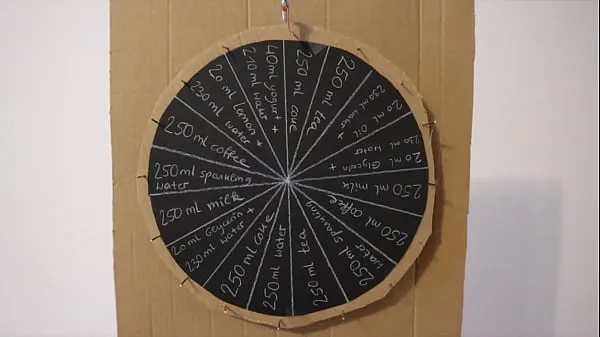 250 ml coke
250 ml tea
250 ml water +
20 ml Oil
230 ml water
20 ml Glycerin +
250 ml milk
250 ml coffee
250 ml sparkling
water
250 ml tea
250 ml water
250 ml coke
20 ml Glycerin
230 ml water +
250 ml milk
250 ml sparkling
water
250 ml coffee
20 ml lemon +
230 ml water
40 ml yogurt +
210 ml water